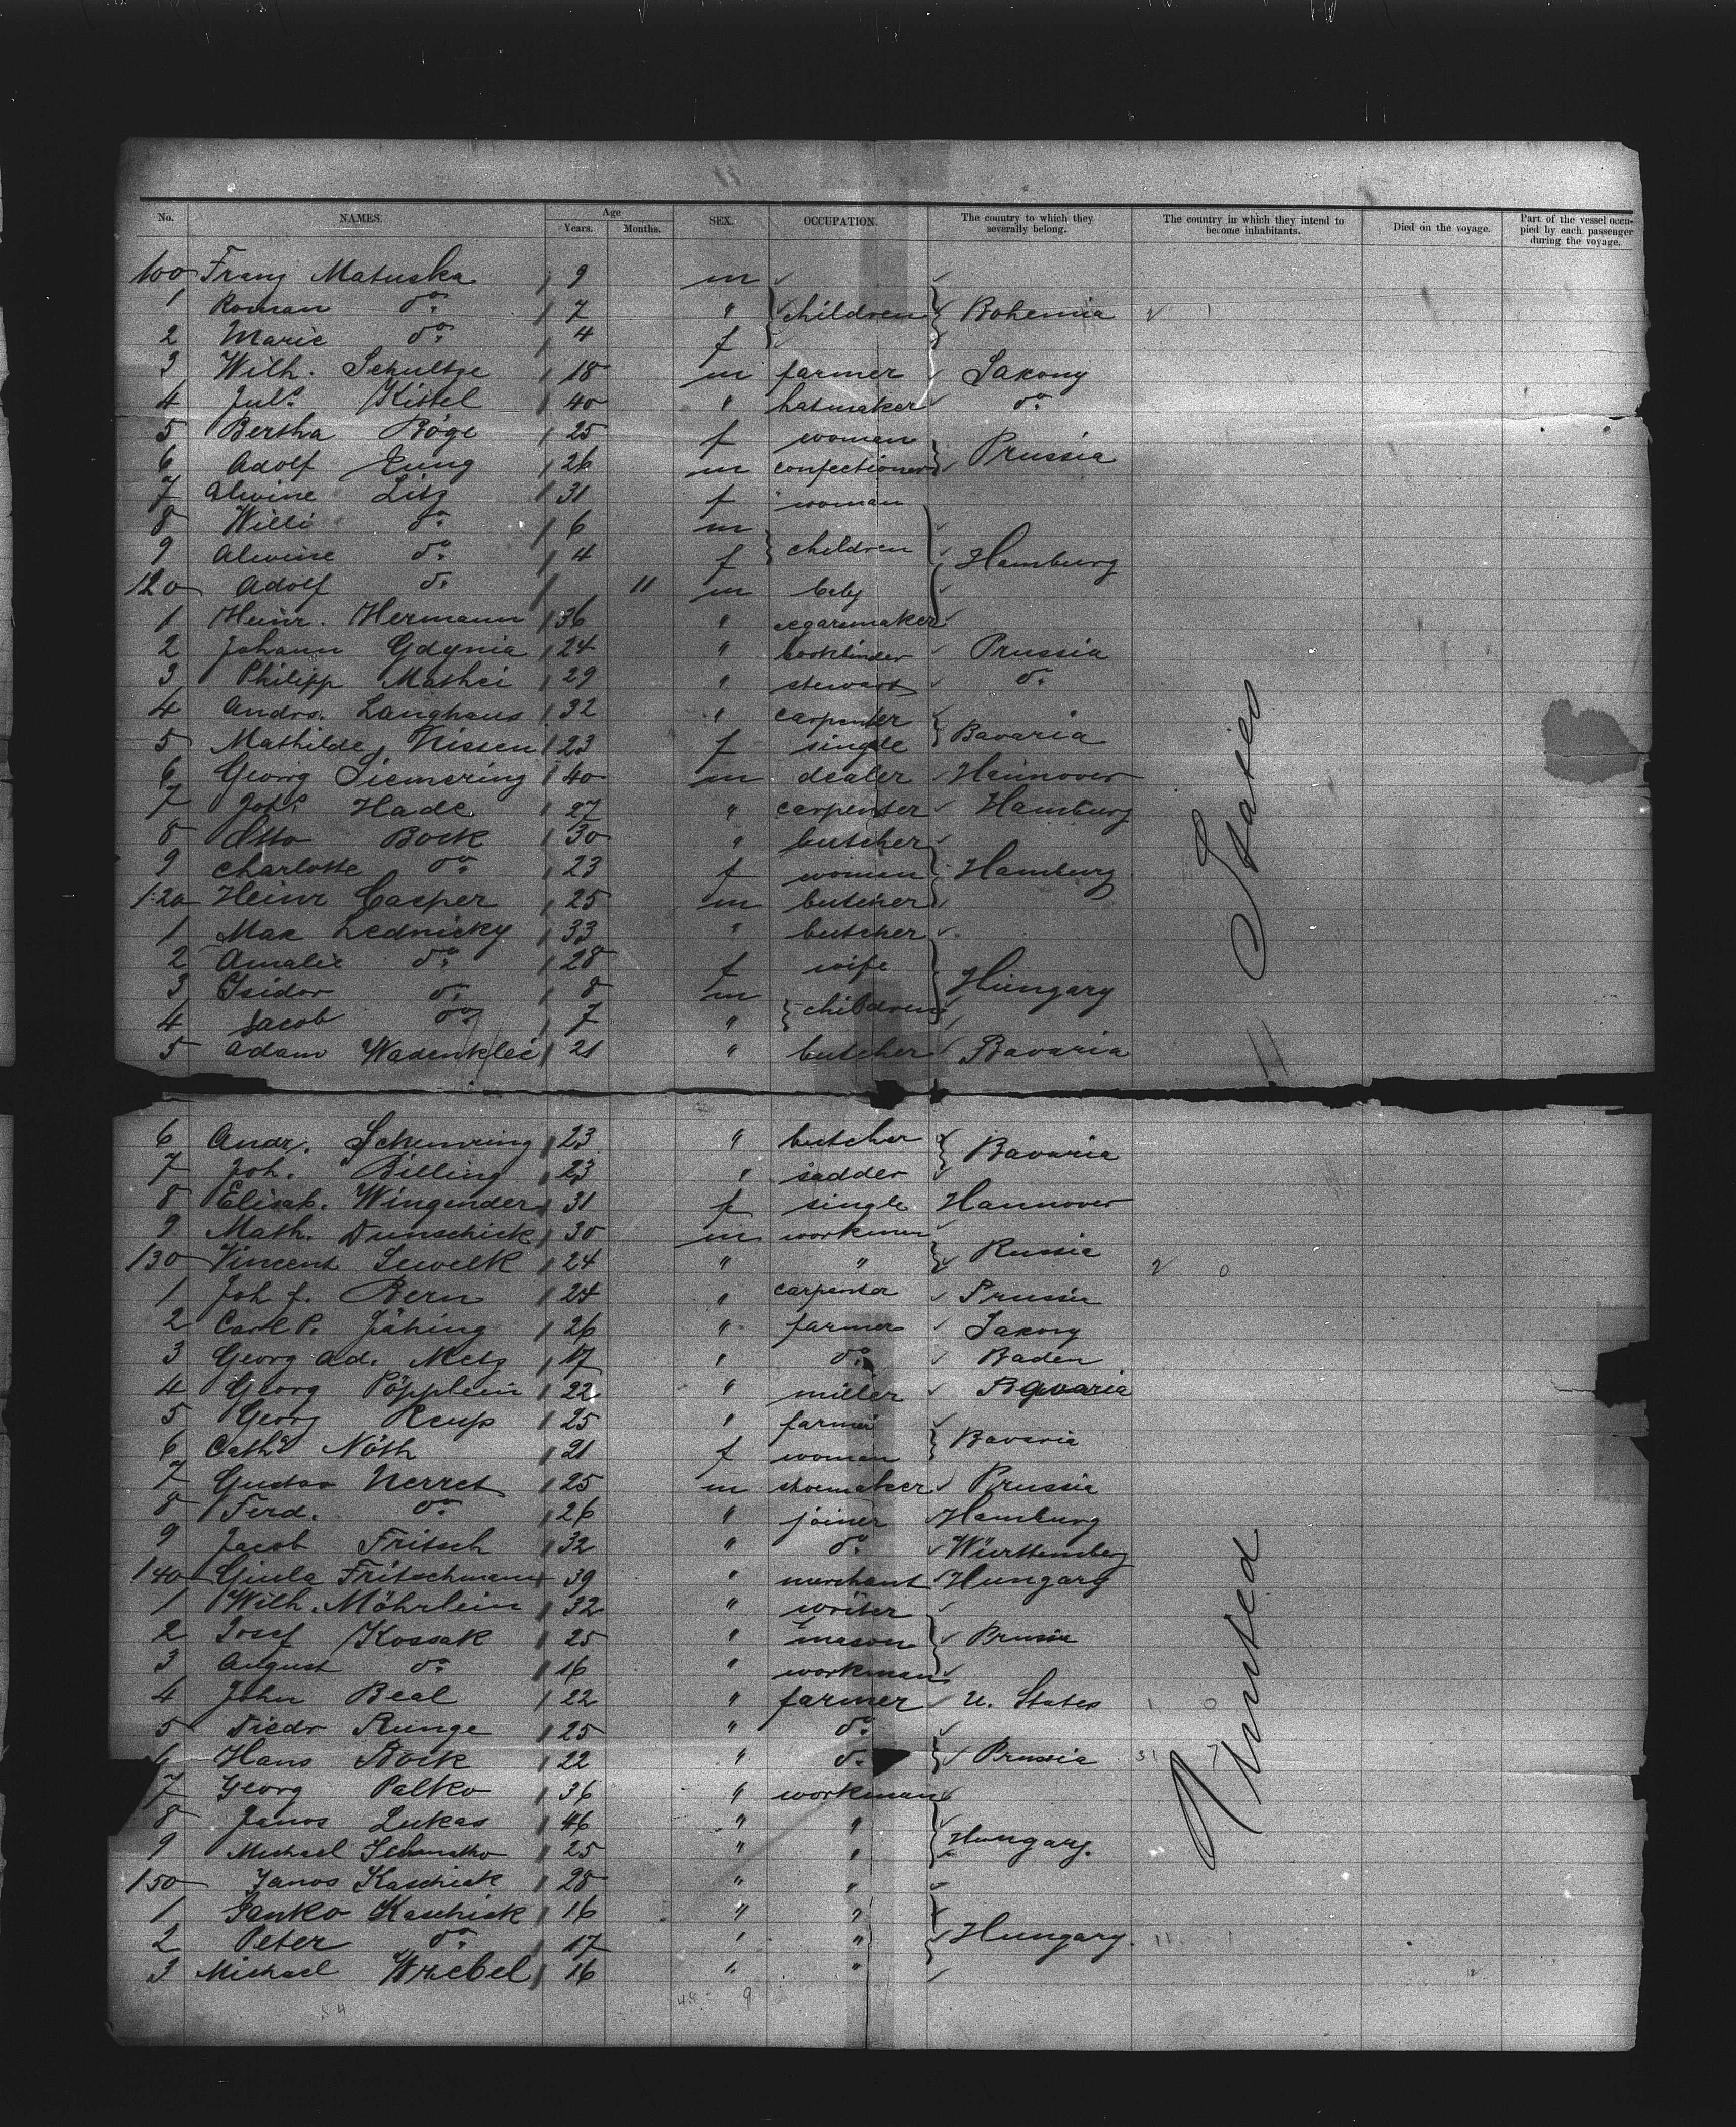 No. NAMES. Age Years. Months. SEX. OCCUPATION. The country to which they severally belong. The country in which they intend to become inhabitants. Died on the voyage. Part of the vessel occupied by each passenger during the voyage.
100 Franz Matuska 9 m
1 Roman do. 7 " children Bohemia
2 Marie do. 4 f
3 Wilh. Schultze 18 m farmer Saxony
4 Juls. Kittel 40 " hatmaker do.
5 Bertha Böge 25 f woman
6 Adolf Jung 26 m confectioner Prussia
7 Alwine Litz 31 f woman
8 Willi do. 6 m
9 Alwine do. 4 f children Hamburg
120 Adolf do. 11 m baby
1 Heinr. Hermann 36 " cegaremaker
2 Johann Gdynia 24 " bookbinder Prussia
3 Philipp Mathei 29 " stewart do.
4 Andrs. Langhans 32 " carpenter
5 Mathilde Nissen 23 f single Bavaria
6 Georg Siemering 40 m dealer Hannover
7 Johs. Hade 27 " carpenter Hamburg
8 Otto Bock 30 " butcher
9 Charlotte do. 23 f woman Hamburg
120 Heinr Casper 25 m butcher
1 Max Lednicky 33 " butcher
2 Amalie do. 28 f wife
3 Isidor do. 8 m Hungary
4 Jacob do. 7 " children
5 Adam Wadenklei 21 " butcher Bavaria
6 Andr. 23 " butcher
7 Joh. Billing 23 " sadder Bavaria
8 Elisab. Wingender 31 f single Hannover
9 Math. Dunschick 30 m workman
130 Vincent Sewelk 24 " " Russia
1 Joh f. Bern 24 " carpenter Prussia
2 Carl P. Jähing 26 " farmer Saxony
3 Georg Ad. Metz 17 " do. Baden
4 Georg Pöpplein 22 " miller Bavaria
5 Georg Reup 25 " farmer
6 Catha Nöth 21 f woman Bavaria
7 Gustav Nerret 25 m shoemaker Prussia
8 Ferd. do. 26 " joiner Hamburg
9 Jacob Fritsch 32 " do. Württemberg
140 Giula Fritschmann 39 " merchant Hungary
1 Wilh. Möhrlein 32 " writer
2 Josef Kossak 25 " mason Prussia
3 August do. 16 " workman
4 John Beal 22 " farmer U. States 1 0
5 Diedr Runge 25 " do.
6 Hans Bock 22 " do. Prussia 31 7
7 Georg Palko 36 " workman
8 Janos Lukas 46 " "
9 Michael 25 " " Hungary.
150 Janos Kaschick 28 " "
1 Janko Kaschick 16 " "
2 Peter do. 17 " " Hungary. 11 1
3 Michael Wrebel 16 " "
United States